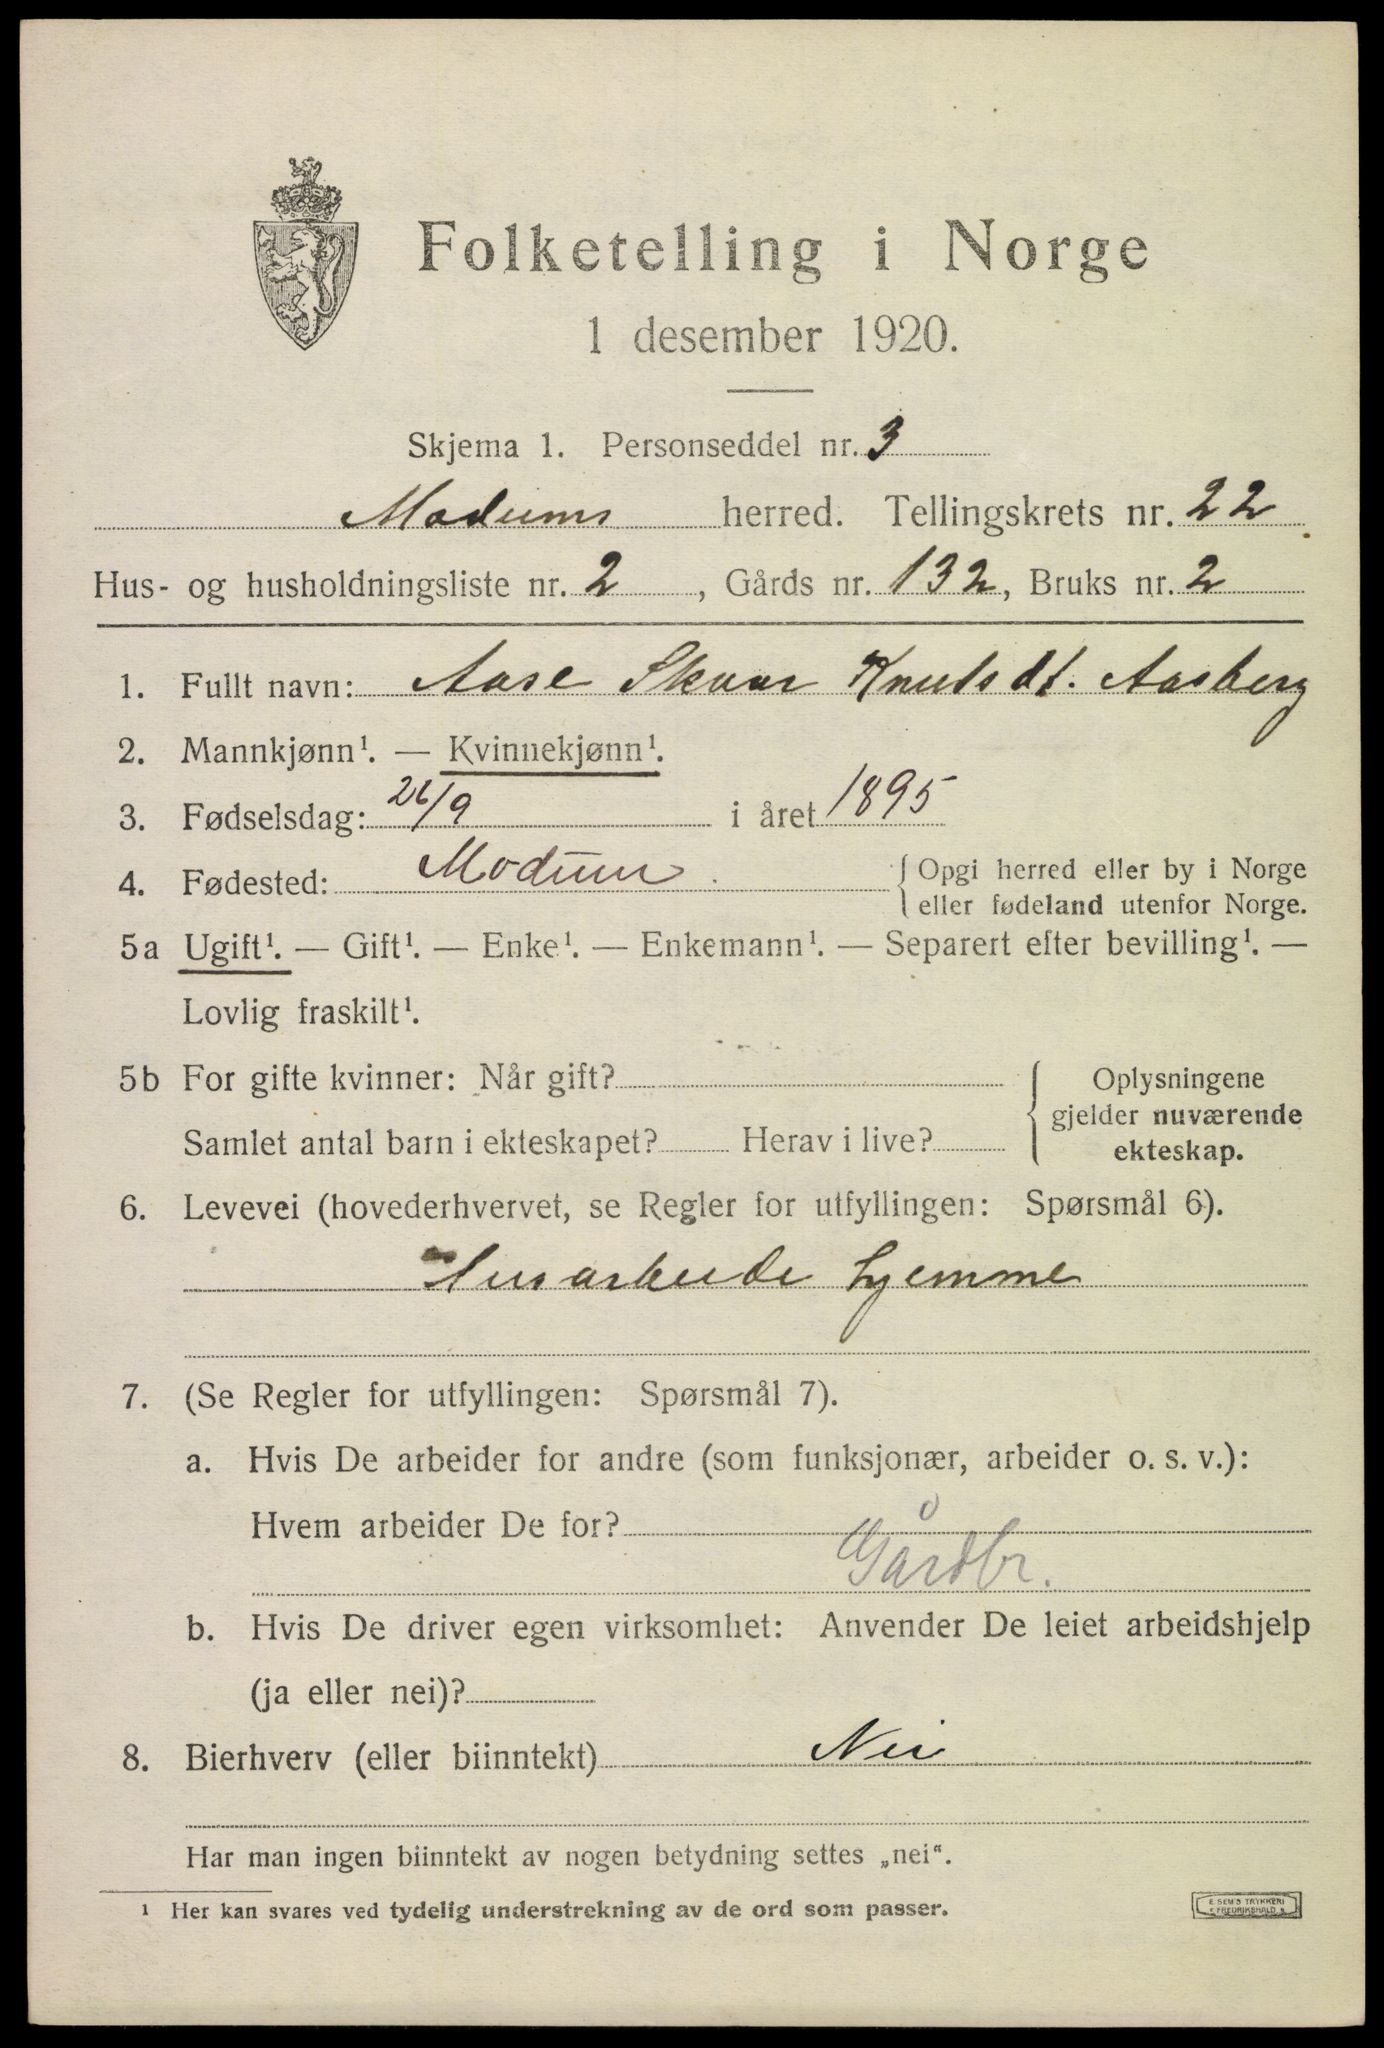 Folketelling i Norge
1 desember 1920.
Skjema 1. Personseddel nr. 3
Modums herred. Tellingskrets nr. 22
Hus- og husholdningsliste nr. 2, Gårds nr. 132, Bruks nr. 2
1. Fullt navn: Aase Skaar Knutsdt. Aasberg
2. Mannkjønn¹. — Kvinnekjønn¹.
3. Fødselsdag: 26/9 i året 1895
4. Fødested: Modum. Opgi herred eller by i Norge
eller fødeland utenfor Norge.
5a Ugift¹. — Gift¹. — Enke¹. — Enkemann¹. — Separert efter bevilling¹. —
Lovlig fraskilt¹.
5b For gifte kvinner: Når gift?
Samlet antal barn i ekteskapet? Herav i live?
Oplysningene
gjelder nuværende
ekteskap.
6. Levevei (hovederhvervet, se Regler for utfyllingen: Spørsmål 6).
Husarbeide hjemme
7. (Se Regler for utfyllingen: Spørsmål 7).
a. Hvis De arbeider for andre (som funksjonær, arbeider o. s. v.):
Hvem arbeider De for?
Gårdbr.
b. Hvis De driver egen virksomhet: Anvender De leiet arbeidshjelp
(ja eller nei)?
8. Bierhverv (eller biinntekt) Nei
Har man ingen biinntekt av nogen betydning settes „nei“.
¹ Her kan svares ved tydelig understrekning av de ord som passer.
E. SEM'S TRYKKERI
FREDRIKSHALD